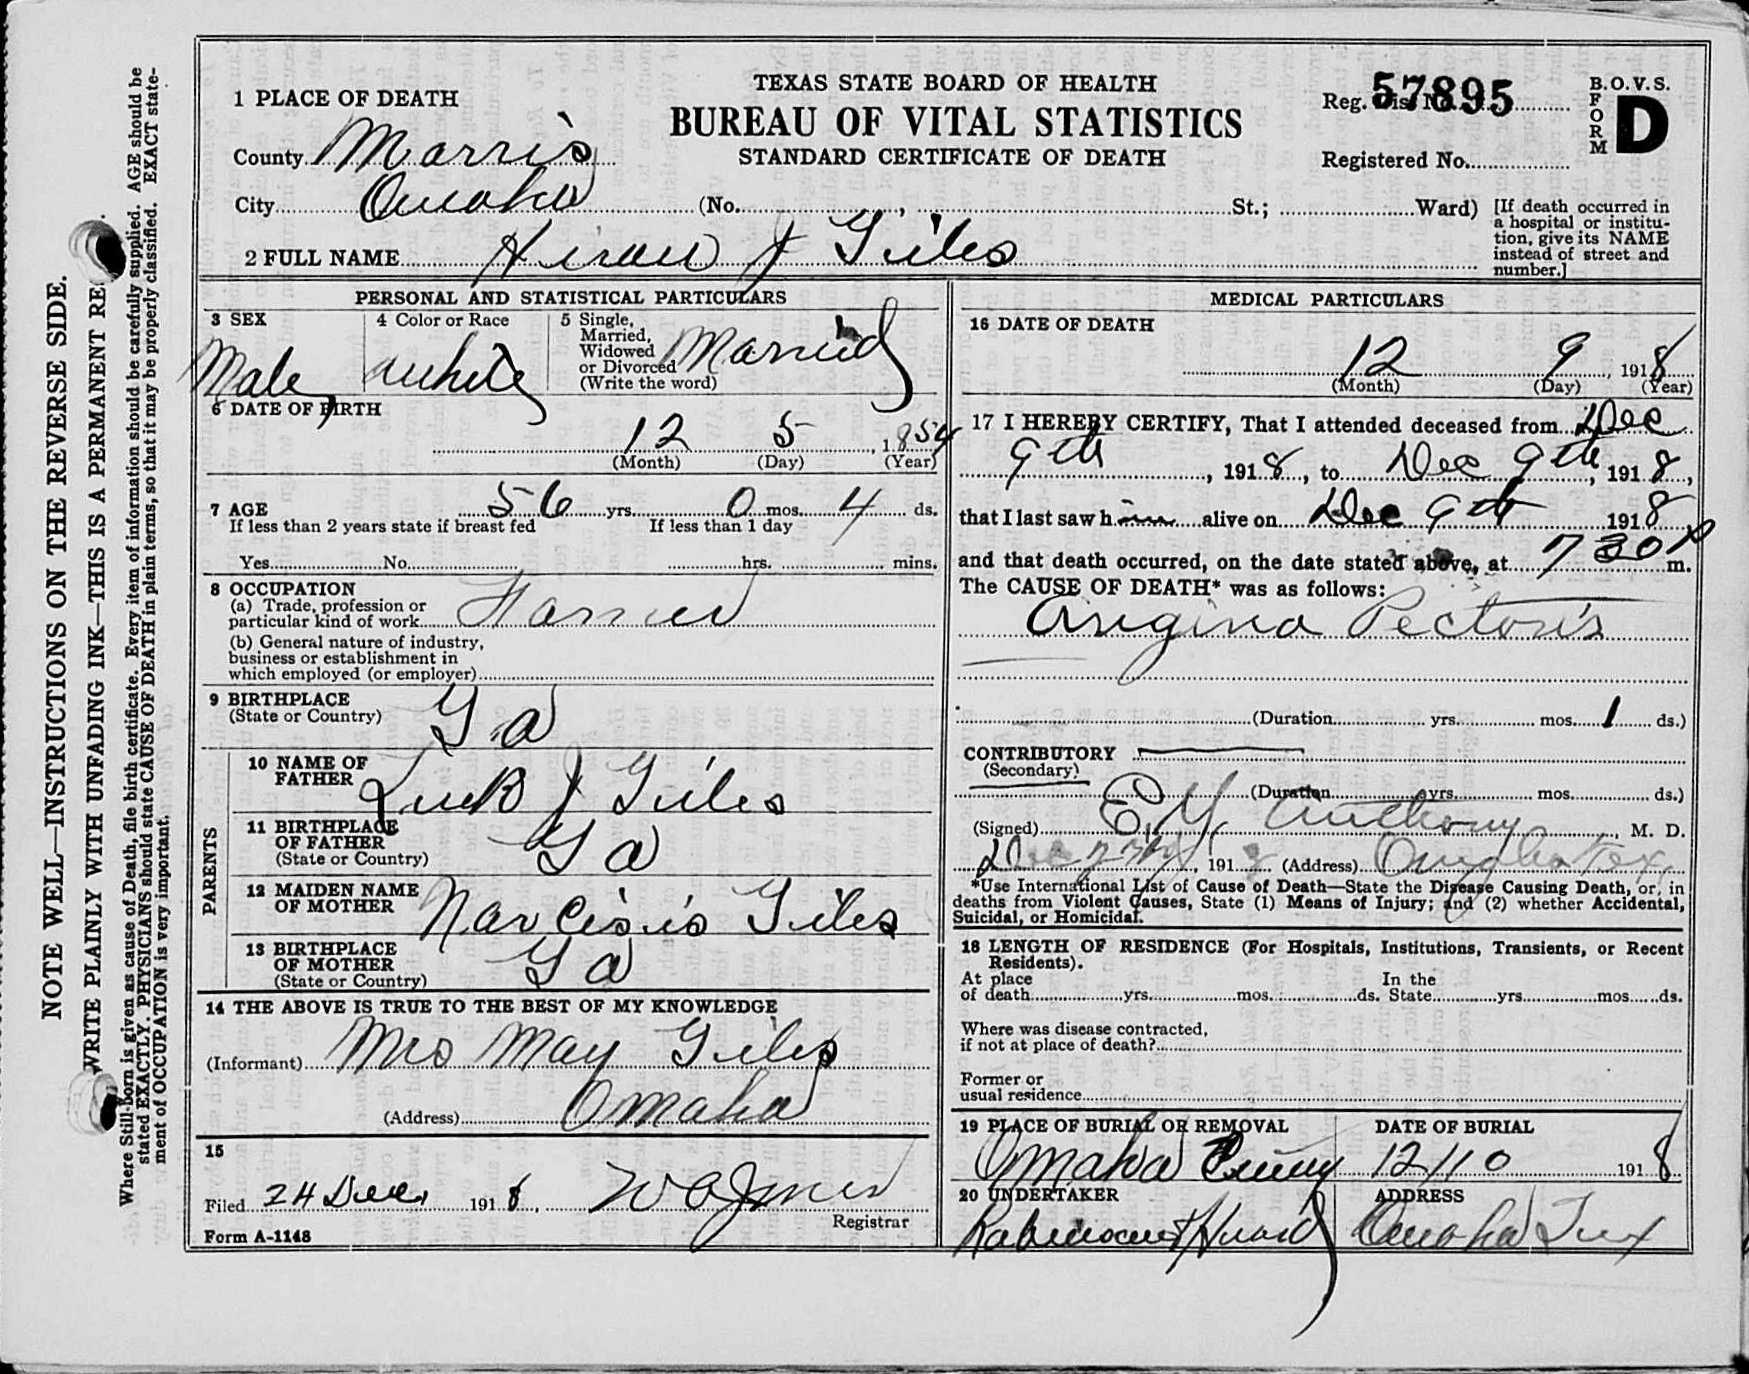 TEXAS STATE BOARD OF HEALTH
BUREAU OF VITAL STATISTICS
STANDARD CERTIFICATE OF DEATH
Reg. Dis. No. 57895
Registered No.
B.O.V.S.
FORM D
1 PLACE OF DEATH
County Morris
City Omaha (No. , St.; Ward)
[If death occurred in
a hospital or institu-
tion, give its NAME
instead of street and
number.]
2 FULL NAME Hiram J Giles
PERSONAL AND STATISTICAL PARTICULARS
3 SEX
Male
4 Color or Race
White
5 Single,
Married,
Widowed
or Divorced
(Write the word)
Married
6 DATE OF BIRTH
12 5 , 1854
(Month) (Day) (Year)
7 AGE 56 yrs. 0 mos. 4 ds.
If less than 2 years state if breast fed If less than 1 day
Yes No hrs. mins.
8 OCCUPATION
(a) Trade, profession or
particular kind of work Farmer
(b) General nature of industry,
business or establishment in
which employed (or employer)
9 BIRTHPLACE
(State or Country) Ga
PARENTS
10 NAME OF
FATHER Luk J Giles
11 BIRTHPLACE
OF FATHER
(State or Country) Ga
12 MAIDEN NAME
OF MOTHER Narcisis Giles
13 BIRTHPLACE
OF MOTHER
(State or Country) Ga
14 THE ABOVE IS TRUE TO THE BEST OF MY KNOWLEDGE
(Informant) Mrs May Giles
(Address) Omaha
15
Filed 24 Dec, 1918,
Registrar
Form A-1148
MEDICAL PARTICULARS
16 DATE OF DEATH
12 9 , 1918
(Month) (Day) (Year)
17 I HEREBY CERTIFY, That I attended deceased from Dec
9th , 1918, to Dec 9th, 1918,
that I last saw him alive on Dec 9th 1918
and that death occurred, on the date stated above, at 730P m.
The CAUSE OF DEATH* was as follows:
Angina Pectoris
(Duration yrs. mos. 1 ds.)
CONTRIBUTORY
(Secondary)
(Duration yrs. mos. ds.)
(Signed) E.Y. Anthony , M. D.
Dec , 1918 (Address) Omaha Tex
*Use International List of Cause of Death—State the Disease Causing Death, or, in
deaths from Violent Causes, State (1) Means of Injury; and (2) whether Accidental,
Suicidal, or Homicidal.
18 LENGTH OF RESIDENCE (For Hospitals, Institutions, Transients, or Recent
Residents).
At place In the
of death yrs. mos. ds. State yrs. mos. ds.
Where was disease contracted,
if not at place of death?
Former or
usual residence
19 PLACE OF BURIAL OR REMOVAL
Omaha
DATE OF BURIAL
12/10 1918
20 UNDERTAKER
ADDRESS
Omaha Tex
NOTE WELL—INSTRUCTIONS ON THE REVERSE SIDE.
WRITE PLAINLY WITH UNFADING INK—THIS IS A PERMANENT RE
Where Still-born is given as cause of Death, file birth certificate. Every item of information should be carefully supplied. AGE should be
stated EXACTLY. PHYSICIANS should state CAUSE OF DEATH in plain terms, so that it may be properly classified. EXACT state-
ment of OCCUPATION is very important.